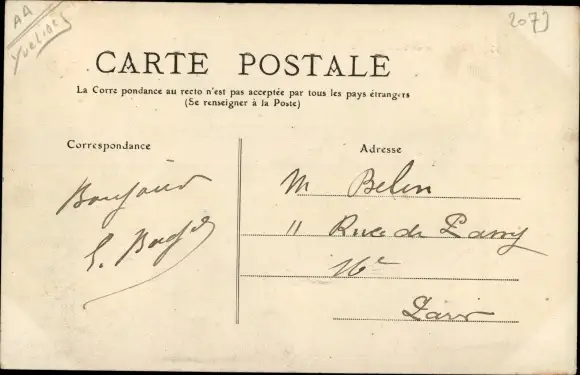 AA
Yvelines
207
CARTE POSTALE
La Corre pondance au recto n'est pas acceptée par tous les pays étrangers
(Se renseigner à la Poste)
Correspondance
Adresse
Bonjour
M Belin
11 Rue de Passy
16e
Paris